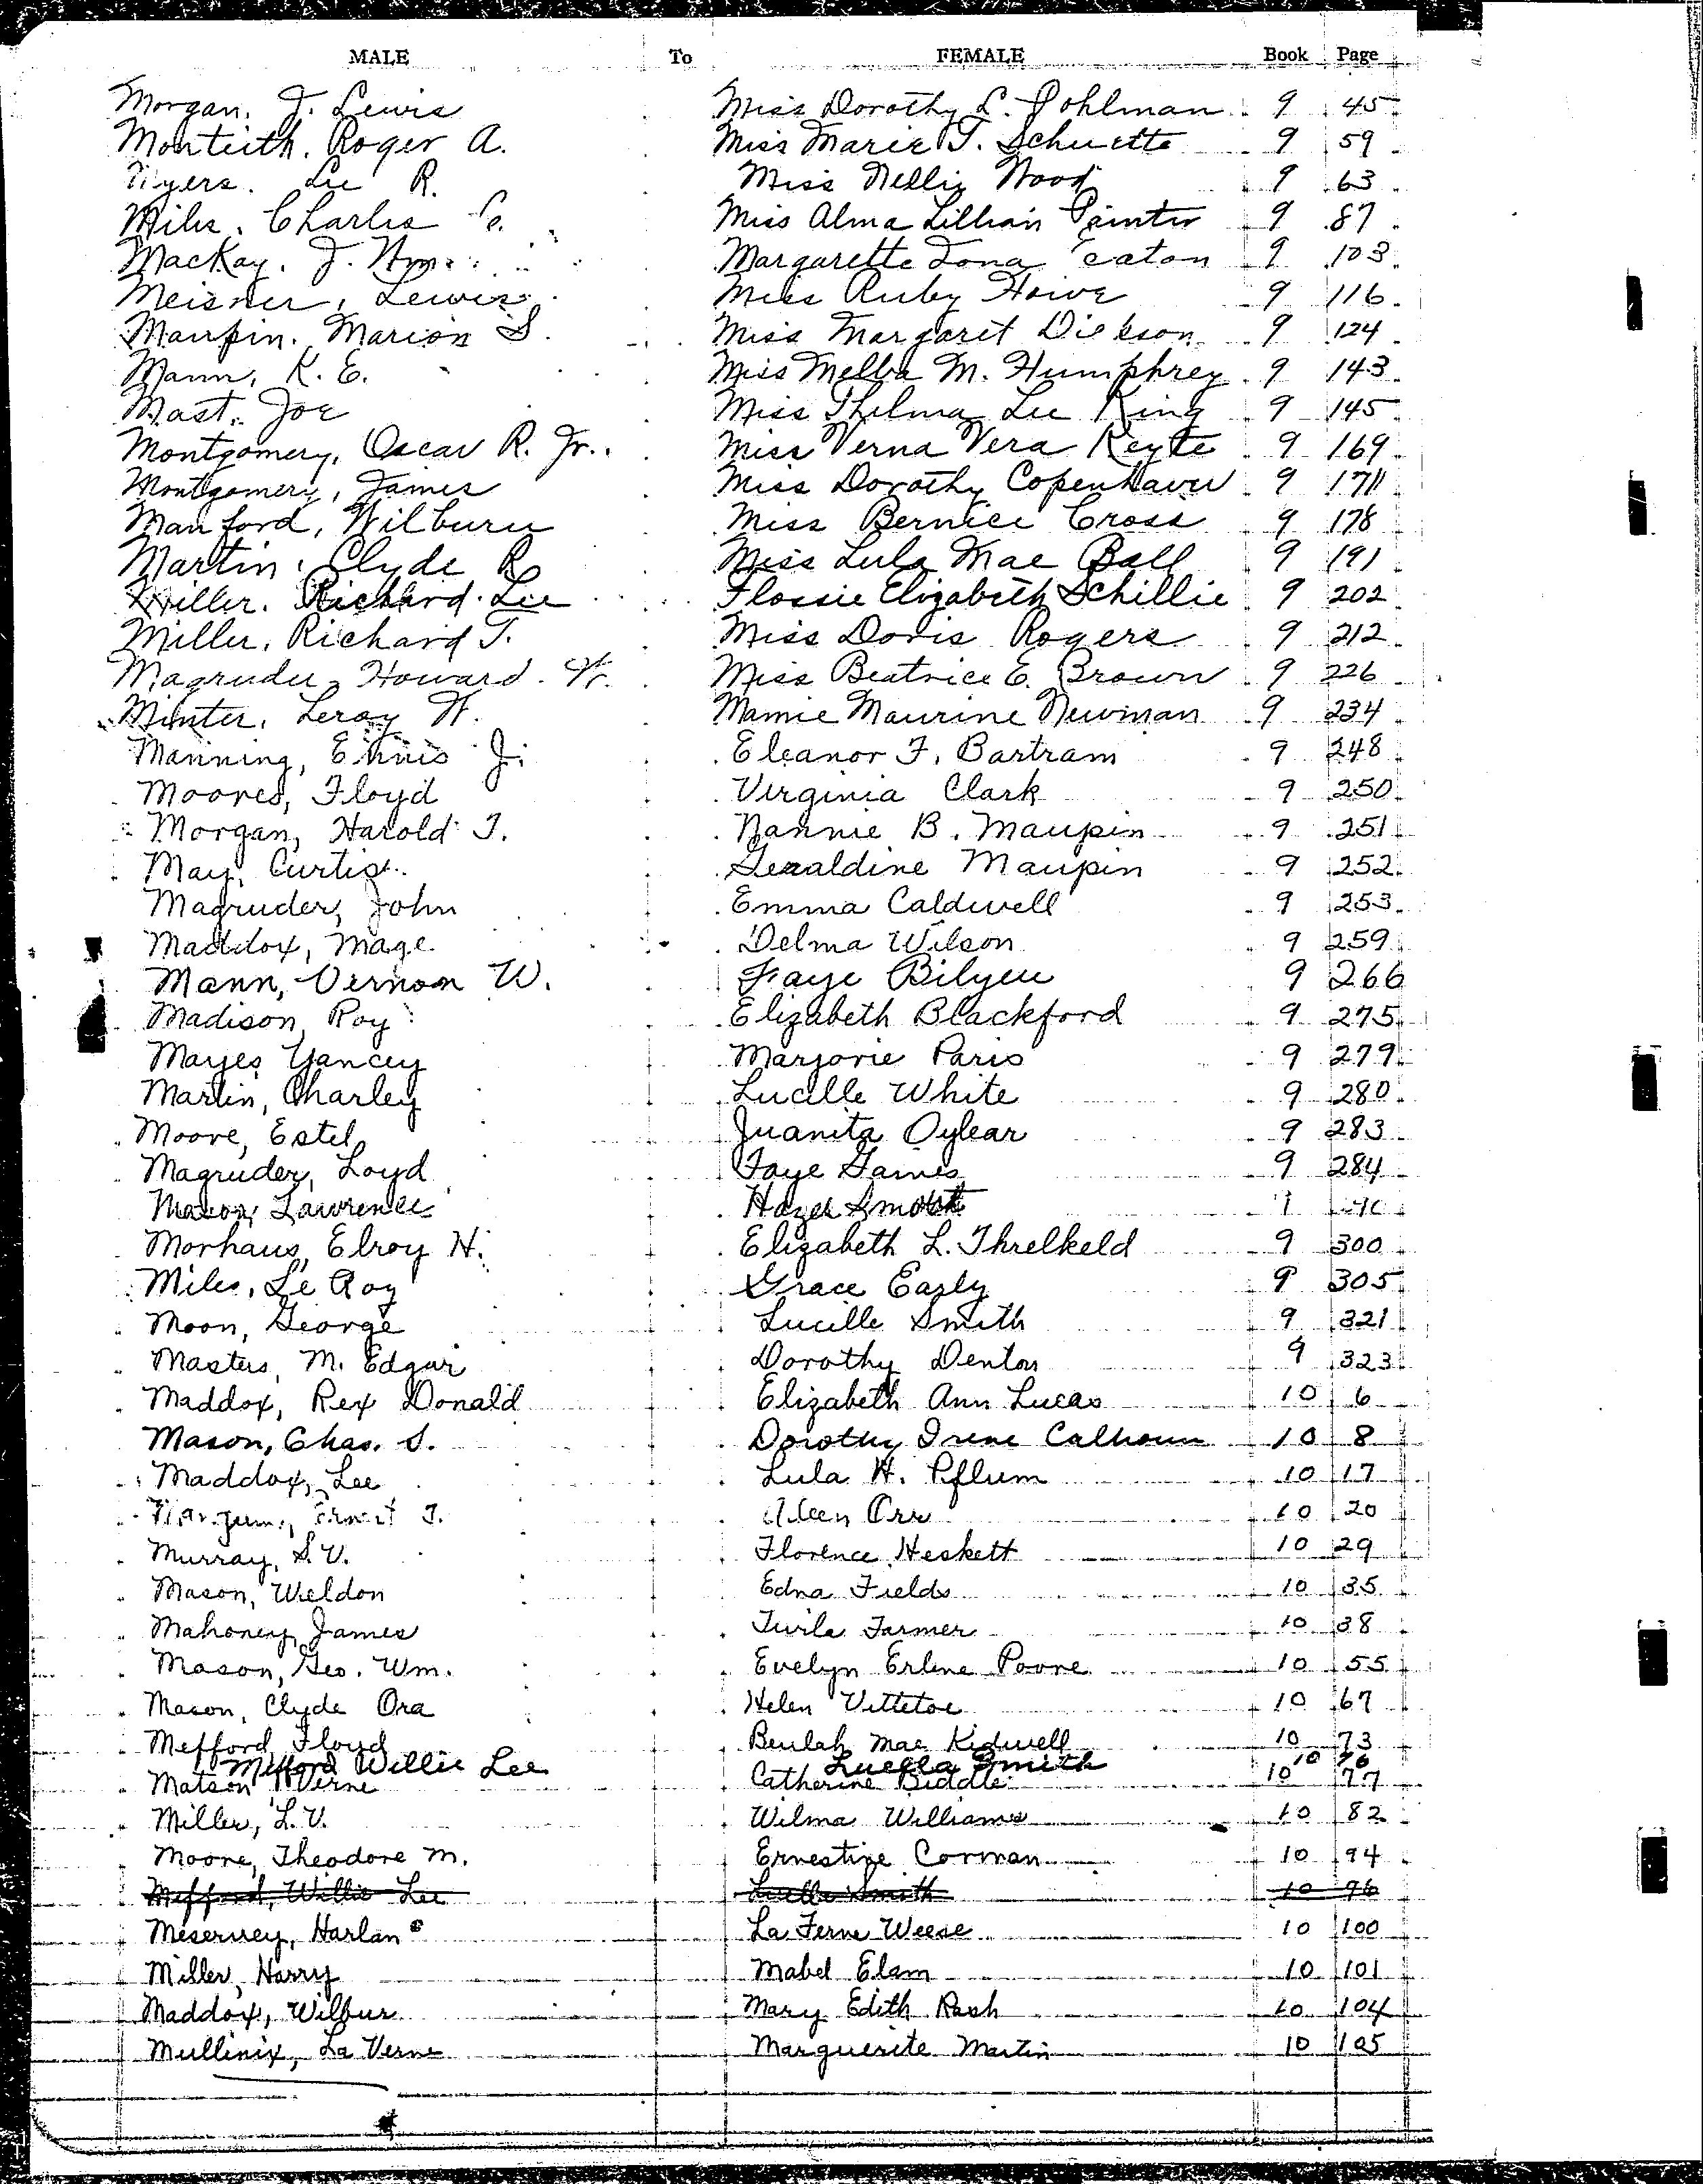 MALE To FEMALE Book Page
Morgan, J. Lewis Miss Dorothy L. Pohlman 9 45
Monteith, Roger A. Miss Marie T. Schuette 9 59
Myers, Lee R. Miss Nellie Wood 9 63
Miles, Charles C. Miss Alma Lillian Painter 9 87
MacKay, J. Wm. Margarette Iona Eaton 9 103
Meisner, Lewis Miss Ruby Howe 9 116
Maupin, Marion S. Miss Margaret Dickson 9 124
Mann, K. E. Miss Melba M. Humphrey 9 143
Mast, Joe Miss Thelma Lee King 9 145
Montgomery, Oscar R. Jr. Miss Verna Vera Keyte 9 169
Montgomery, James Miss Dorothy Copenhaver 9 171
Manford, Wilburn Miss Bernice Cross 9 178
Martin, Clyde R. Miss Lula Mae Ball 9 191
Miller, Richard Lee Flossie Elizabeth Schillie 9 202
Miller, Richard T. Miss Doris Rogers 9 212
Magruder, Howard Miss Beatrice E. Brown 9 226
Minter, Leroy W. Mamie Maurine Newman 9 234
Manning, Ennis J. Eleanor F. Bartram 9 248
Moores, Floyd Virginia Clark 9 250
Morgan, Harold T. Nannie B. Maupin 9 251
May, Curtis Geraldine Maupin 9 252
Magruder, John Emma Caldwell 9 253
Maddox, Mage Delma Wilson 9 259
Mann, Vernon W. Faye Bilyeu 9 266
Madison, Roy Elizabeth Blackford 9 275
Mayes, Yancey Marjorie Paris 9 279
Martin, Charley Lucille White 9 280
Moore, Estel Juanita Oylear 9 283
Magruder, Loyd Faye Gaines 9 284
Mason, Lawrence Hazel
Morhaus, Elroy H. Elizabeth L. Threlkeld 9 300
Miles, Le Roy Grace Early 9 305
Moon, George Lucille Smith 9 321
Masters, M. Edgar Dorothy Denton 9 323
Maddox, Rex Donald Elizabeth Ann Lucas 10 6
Mason, Chas. S. Dorothy Irene Calhoun 10 8
Maddox, Lee Lula H. Pflum 10 17
Mangum, Ernest T. Aleen Orr 10 20
Murray, S. V. Florence Heskett 10 29
Mason, Weldon Edna Fields 10 35
Mahoney, James Twila Farmer 10 38
Mason, Geo. Wm. Evelyn Erline Poore 10 55
Mason, Clyde Ora Helen Vittetoe 10 67
Mefford, Floyd Beulah Mae Kidwell 10 73
Mefford Willie Lee Luella Smith 10 76
Matson, Verne Catherine Biddle 10 77
Miller, L. V. Wilma Williams 10 82
Moore, Theodore M. Ernestine Corman 10 94
Mefford, Willie Lee Luella Smith 10 96
Meservey, Harlan La Ferne Weese 10 100
Miller, Harry Mabel Elam 10 101
Maddox, Wilbur Mary Edith Rash 10 104
Mullinix, La Verne Marguerite Martin 10 105